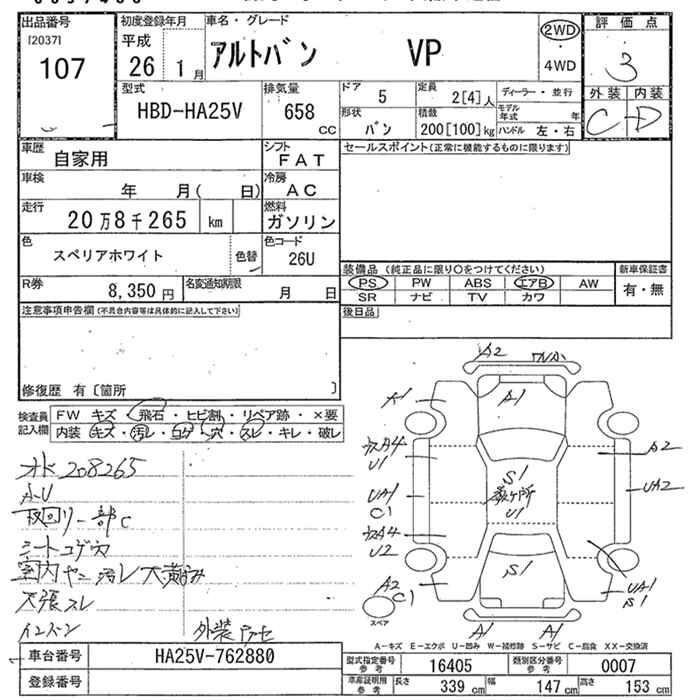 出品番号
[2037]
107
初度登録年月
平成
26 1月
車名・グレード
アルトバン VP
2WD
・
4WD
評価点
3
外装 内装
C D
型式
HBD-HA25V
排気量
658 cc
ドア 5
定員 2[4]人
ディーラー・並行
形状 バン
積載 200[100]kg
モデル年式 年
ハンドル 左・右
車歴
自家用
シフト
FAT
セールスポイント(正常に機能するものに限ります)
車検
年 月( 日)
冷房
AC
走行
20万8千265 km
燃料
ガソリン
色
スペリアホワイト
色替
色コード
26U
装備品(純正品に限り○をつけてください)
新車保証書
PS PW ABS エアB AW
SR ナビ TV カワ
有・無
R券
8,350円
名変通知期限
月 日
後日品
注意事項申告欄(不具合内容等は具体的に記入して下さい)
修復歴 有〔箇所 〕
検査員記入欄
FW キズ・飛石・ヒビ割・リペア跡・×要
内装 キズ・汚レ・コゲ・穴・スレ・キレ・破レ
メ 208265
A-U
下回リ一部C
シートコゲ穴
室内ヤニ汚レ大
天張スレ
外装
A2
A1
A1
ウスA4
U1
A2
UA1
C1
S1
数ヶ所
U1
UA2
ウスA4
U2
S1
A2
C1
UA1
S1
スペア
A1 A1
A-キズ E-エクボ U-凹み W-補修跡 S-サビ C-腐食 XX-交換済
車台番号
HA25V-762880
登録番号
型式指定番号 参考
16405
類別区分番号 参考
0007
車庫証明用 参考
長さ 339 cm
幅 147 cm
高さ 153 cm